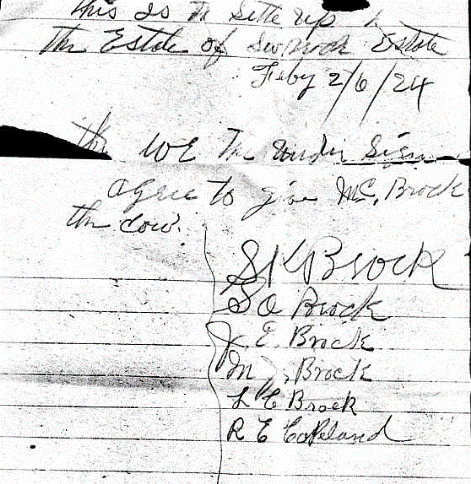 this is to settle up
the Estate of Brock Estate
Feby 2/6/24
the WE The under Sign
agree to give MC, Brock
the cow.
S K Brock
S O Brock
J E. Brock
M J. Brock
L C Brock
R E Copeland